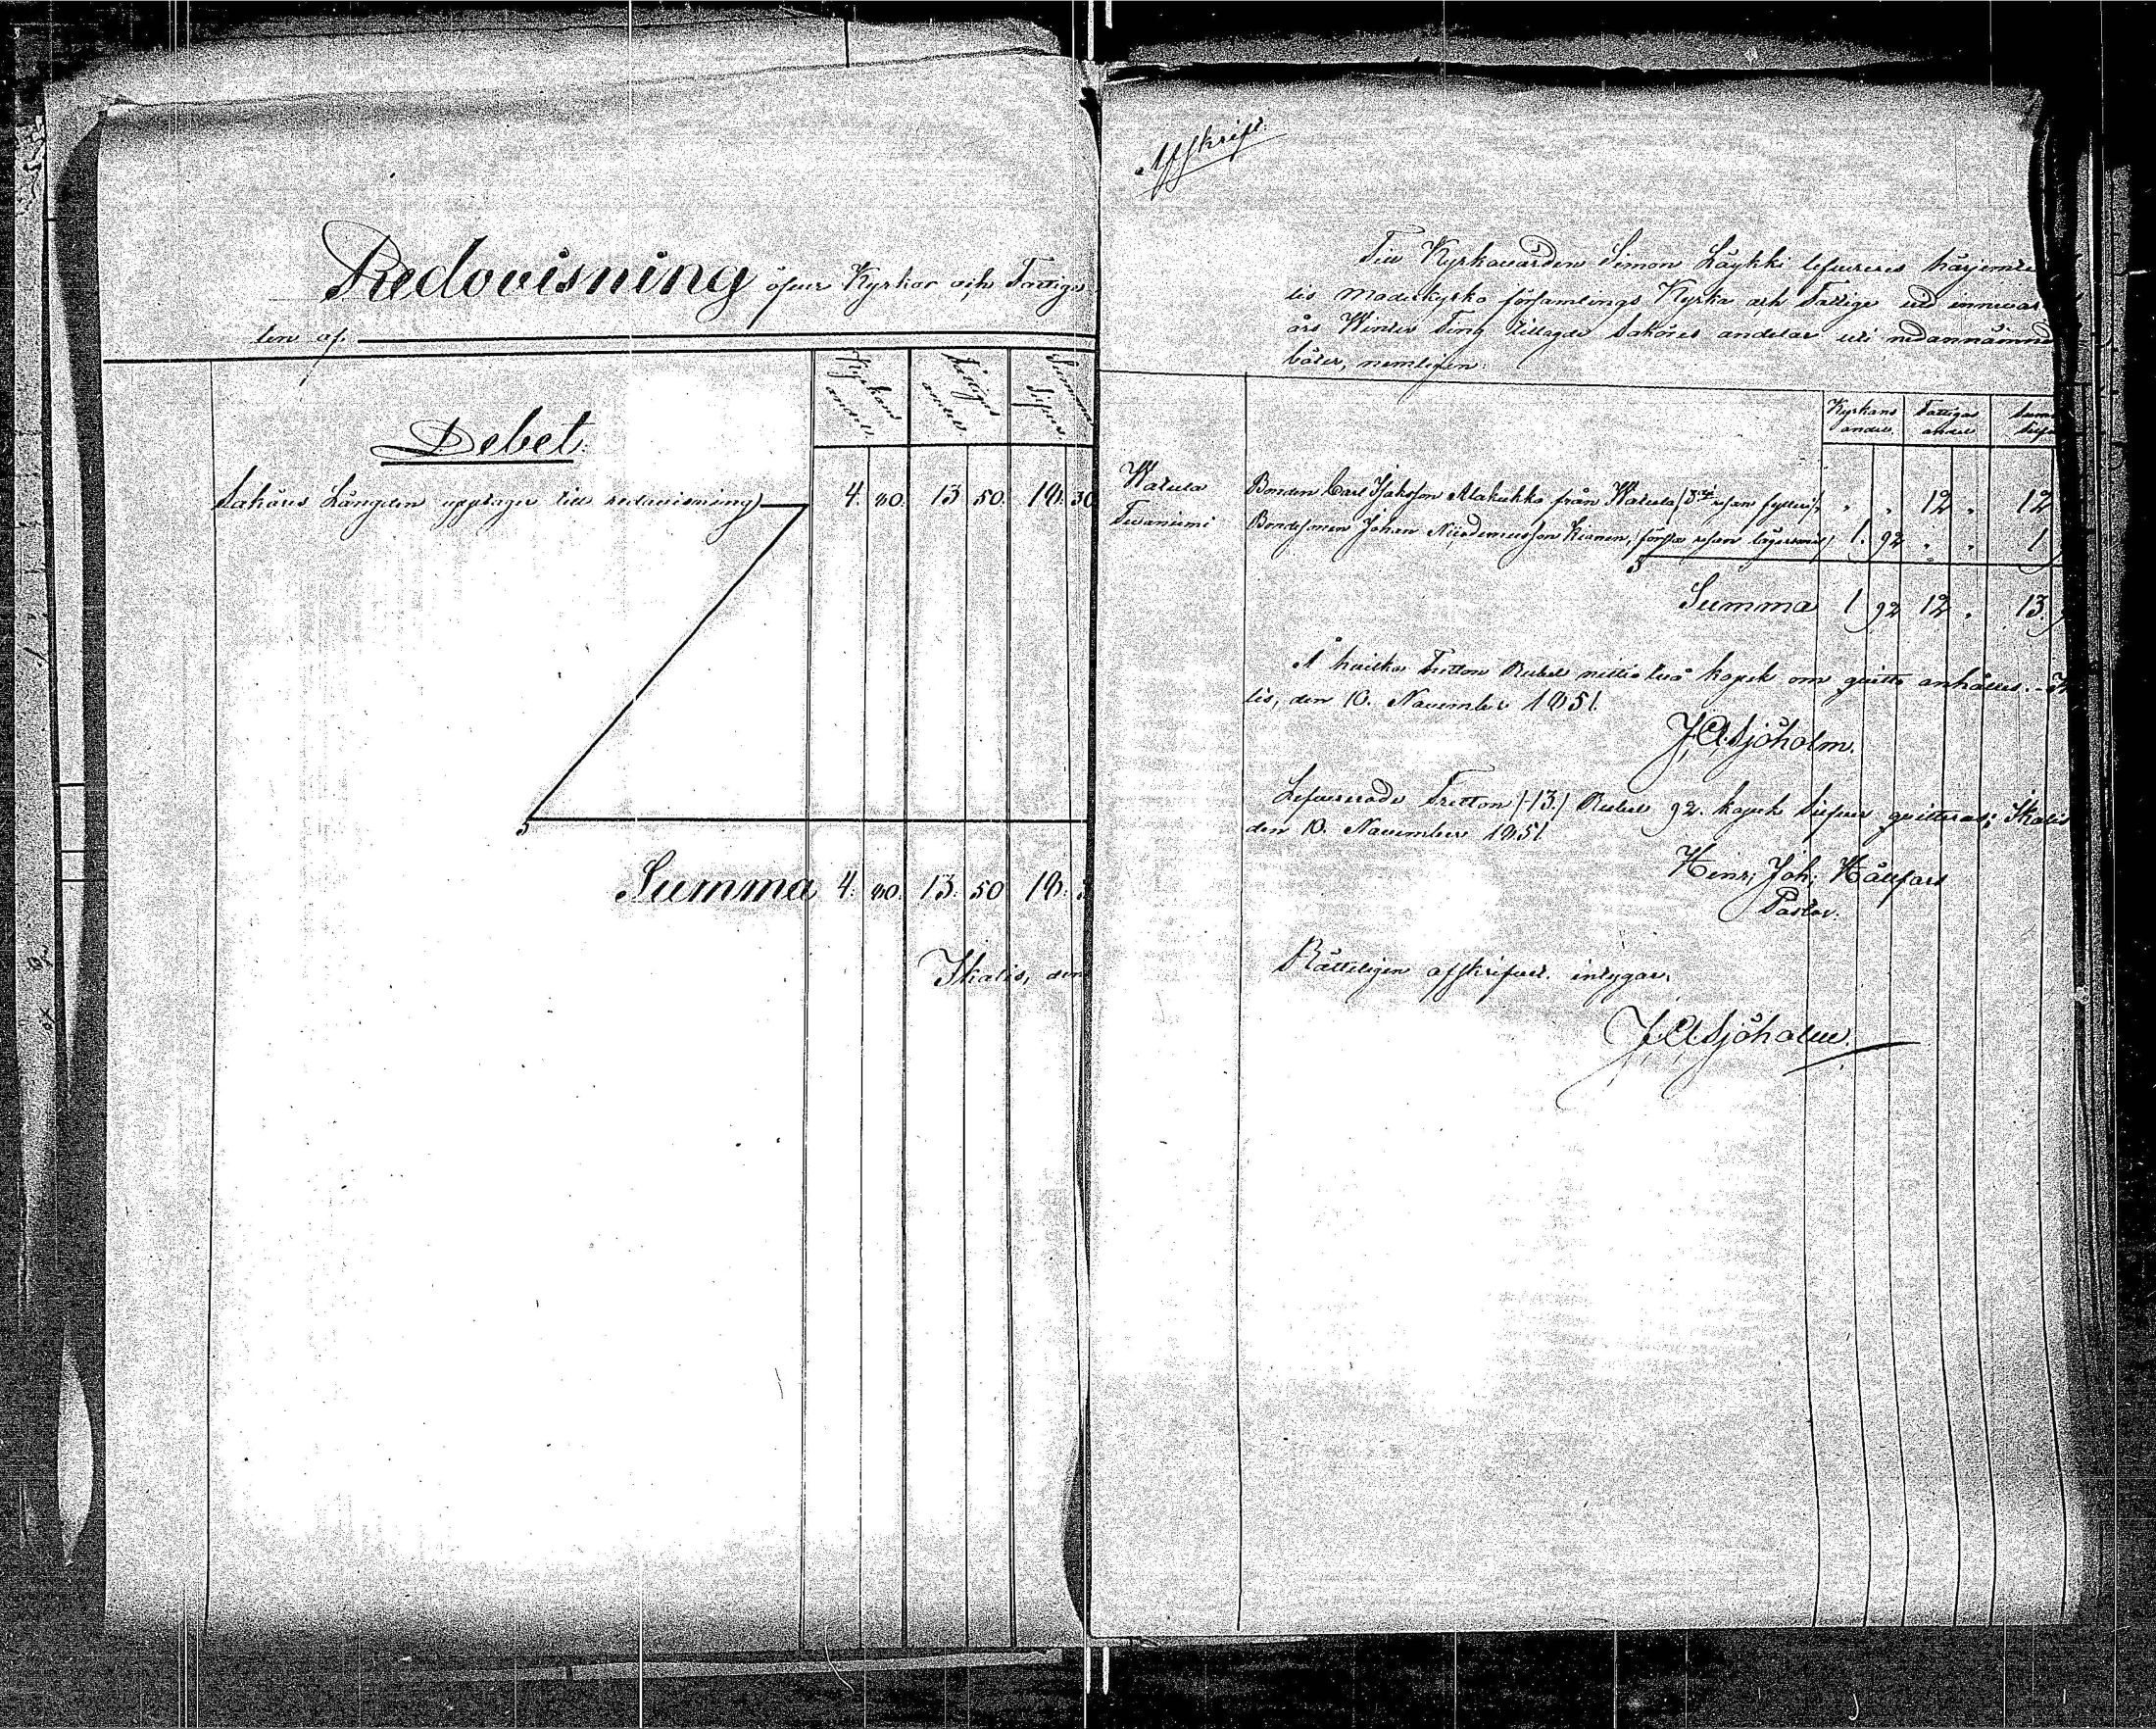 Redovisning öfver Kyrkor och Fattige
len af.
Kyrkans andel.
Fattigas andel.
Summa Silfver
Debet.
Saköres Längden upptager till redovisning 4. 80. 13 50. 18. 30
Summa 4. 80. 13. 50 18. 3
Ikalis, den
Afskrift.
Till Kyrkovärden Simon Läykki lefvereres härjemte
lis Moderkyrko församlings Kyrka och Fattige vid innevar
års Winter Ting tillagde Saköres andelar uti nedannämnd
böter, nemligen:
Kyrkans andel. Fattigas andel Sum Silf
Watula Bonden Carl Isaksson Alakukko från Watula /3dje resan fylleri/ " " 12 " 12
Bondesonen Johan Nicodemusson Kianen, /första resan lägersmål/ 1. 92 " " 1
Summa 1 92 12 " 13. 9
Å hvilka Tretton Rubel nittiotvå kopek om qvitto anhålles.
lis, den 10. November 1851.
J. A. Sjöholm.
Lefvererade Tretton /13./ Rubel 92. kopek Silfver qvitteras; Ikalis
den 10. November 1851.
Henr; Joh; Hällfors
Pastor.
Rätteligen afskrifvet. intygar.
J. A. Sjöholm.